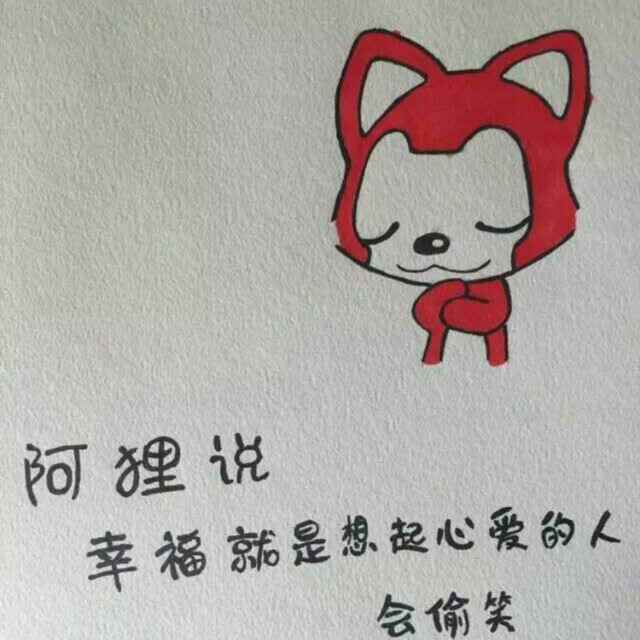 阿狸说
幸福就是想起心爱的人
会偷笑